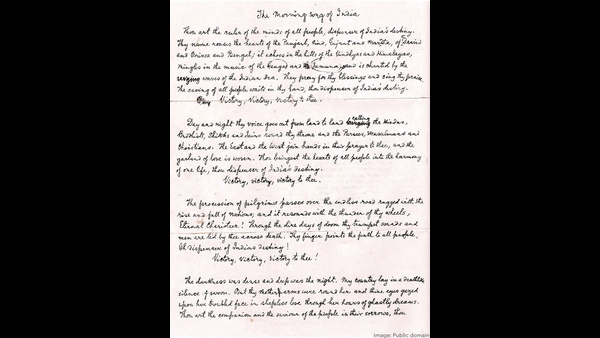 The Morning song of India
Thou art the ruler of the minds of all people, dispenser of India's destiny.
Thy name rouses the hearts of the Panjaub, Sind, Gujrat and Maratha, of Dravid
and Orissa and Bengal; it echoes in the hills of the Vindhyas and Himalayas,
mingles in the music of the Ganges and Jamuna and is chanted by the
waves of the Indian Sea. They pray for thy blessings and sing thy praise.
The saving of all people waits in thy hand, thou dispenser of India's destiny.
Victory, Victory, Victory to thee.
Day and night thy voice goes out from land to land calling the Hindus,
Buddhists, Sikhs and Jains round thy throne and the Parsees, Mussulmans and
Christians. The East and the West join hands in their prayer to thee, and the
garland of love is woven. Thou bringest the hearts of all people into the harmony
of one life, thou dispenser of India's destiny.
Victory, victory, victory to thee.
The procession of pilgrims passes over the endless road rugged with the
rise and fall of nations; and it resounds with the thunder of thy wheels,
Eternal Charioteer! Through the dire days of doom thy trumpet sounds and
men are led by thee across death. Thy finger points the path to all people,
Oh dispenser of India's destiny!
Victory, victory, victory to thee!
The darkness was dense and deep was the night. My country lay in a deathlike
silence of swoon. But thy mother arms were round her and thine eyes gazed
upon her troubled face in sleepless love through her hours of ghastly dreams.
Thou art the companion and the saviour of the people in their sorrows, thou
Image: Public domain